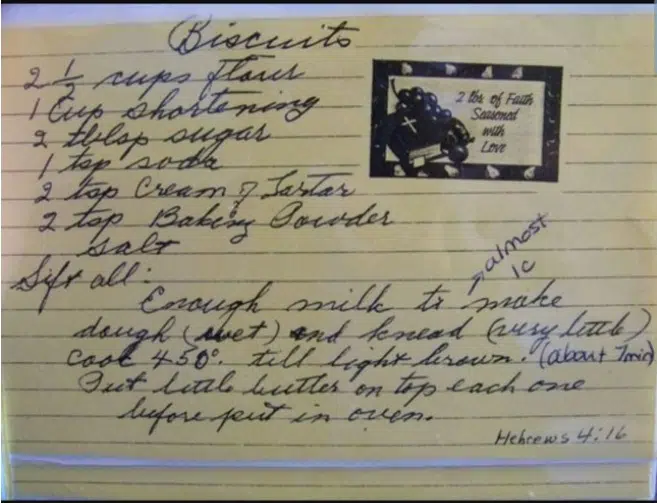 Biscuits
2 1/2 cups flour
1 Cup shortening
2 tblsp sugar
1 tsp soda
2 tsp Cream of Tartar
2 tsp Baking Powder
salt
2 lbs. of Faith
Seasoned
with
Love
Sift all:
almost
1c
Enough milk to make
dough (wet) and knead (very little)
cook 450°. till light brown. (about 7min)
Put little butter on top each one
before put in oven.
Hebrews 4:16